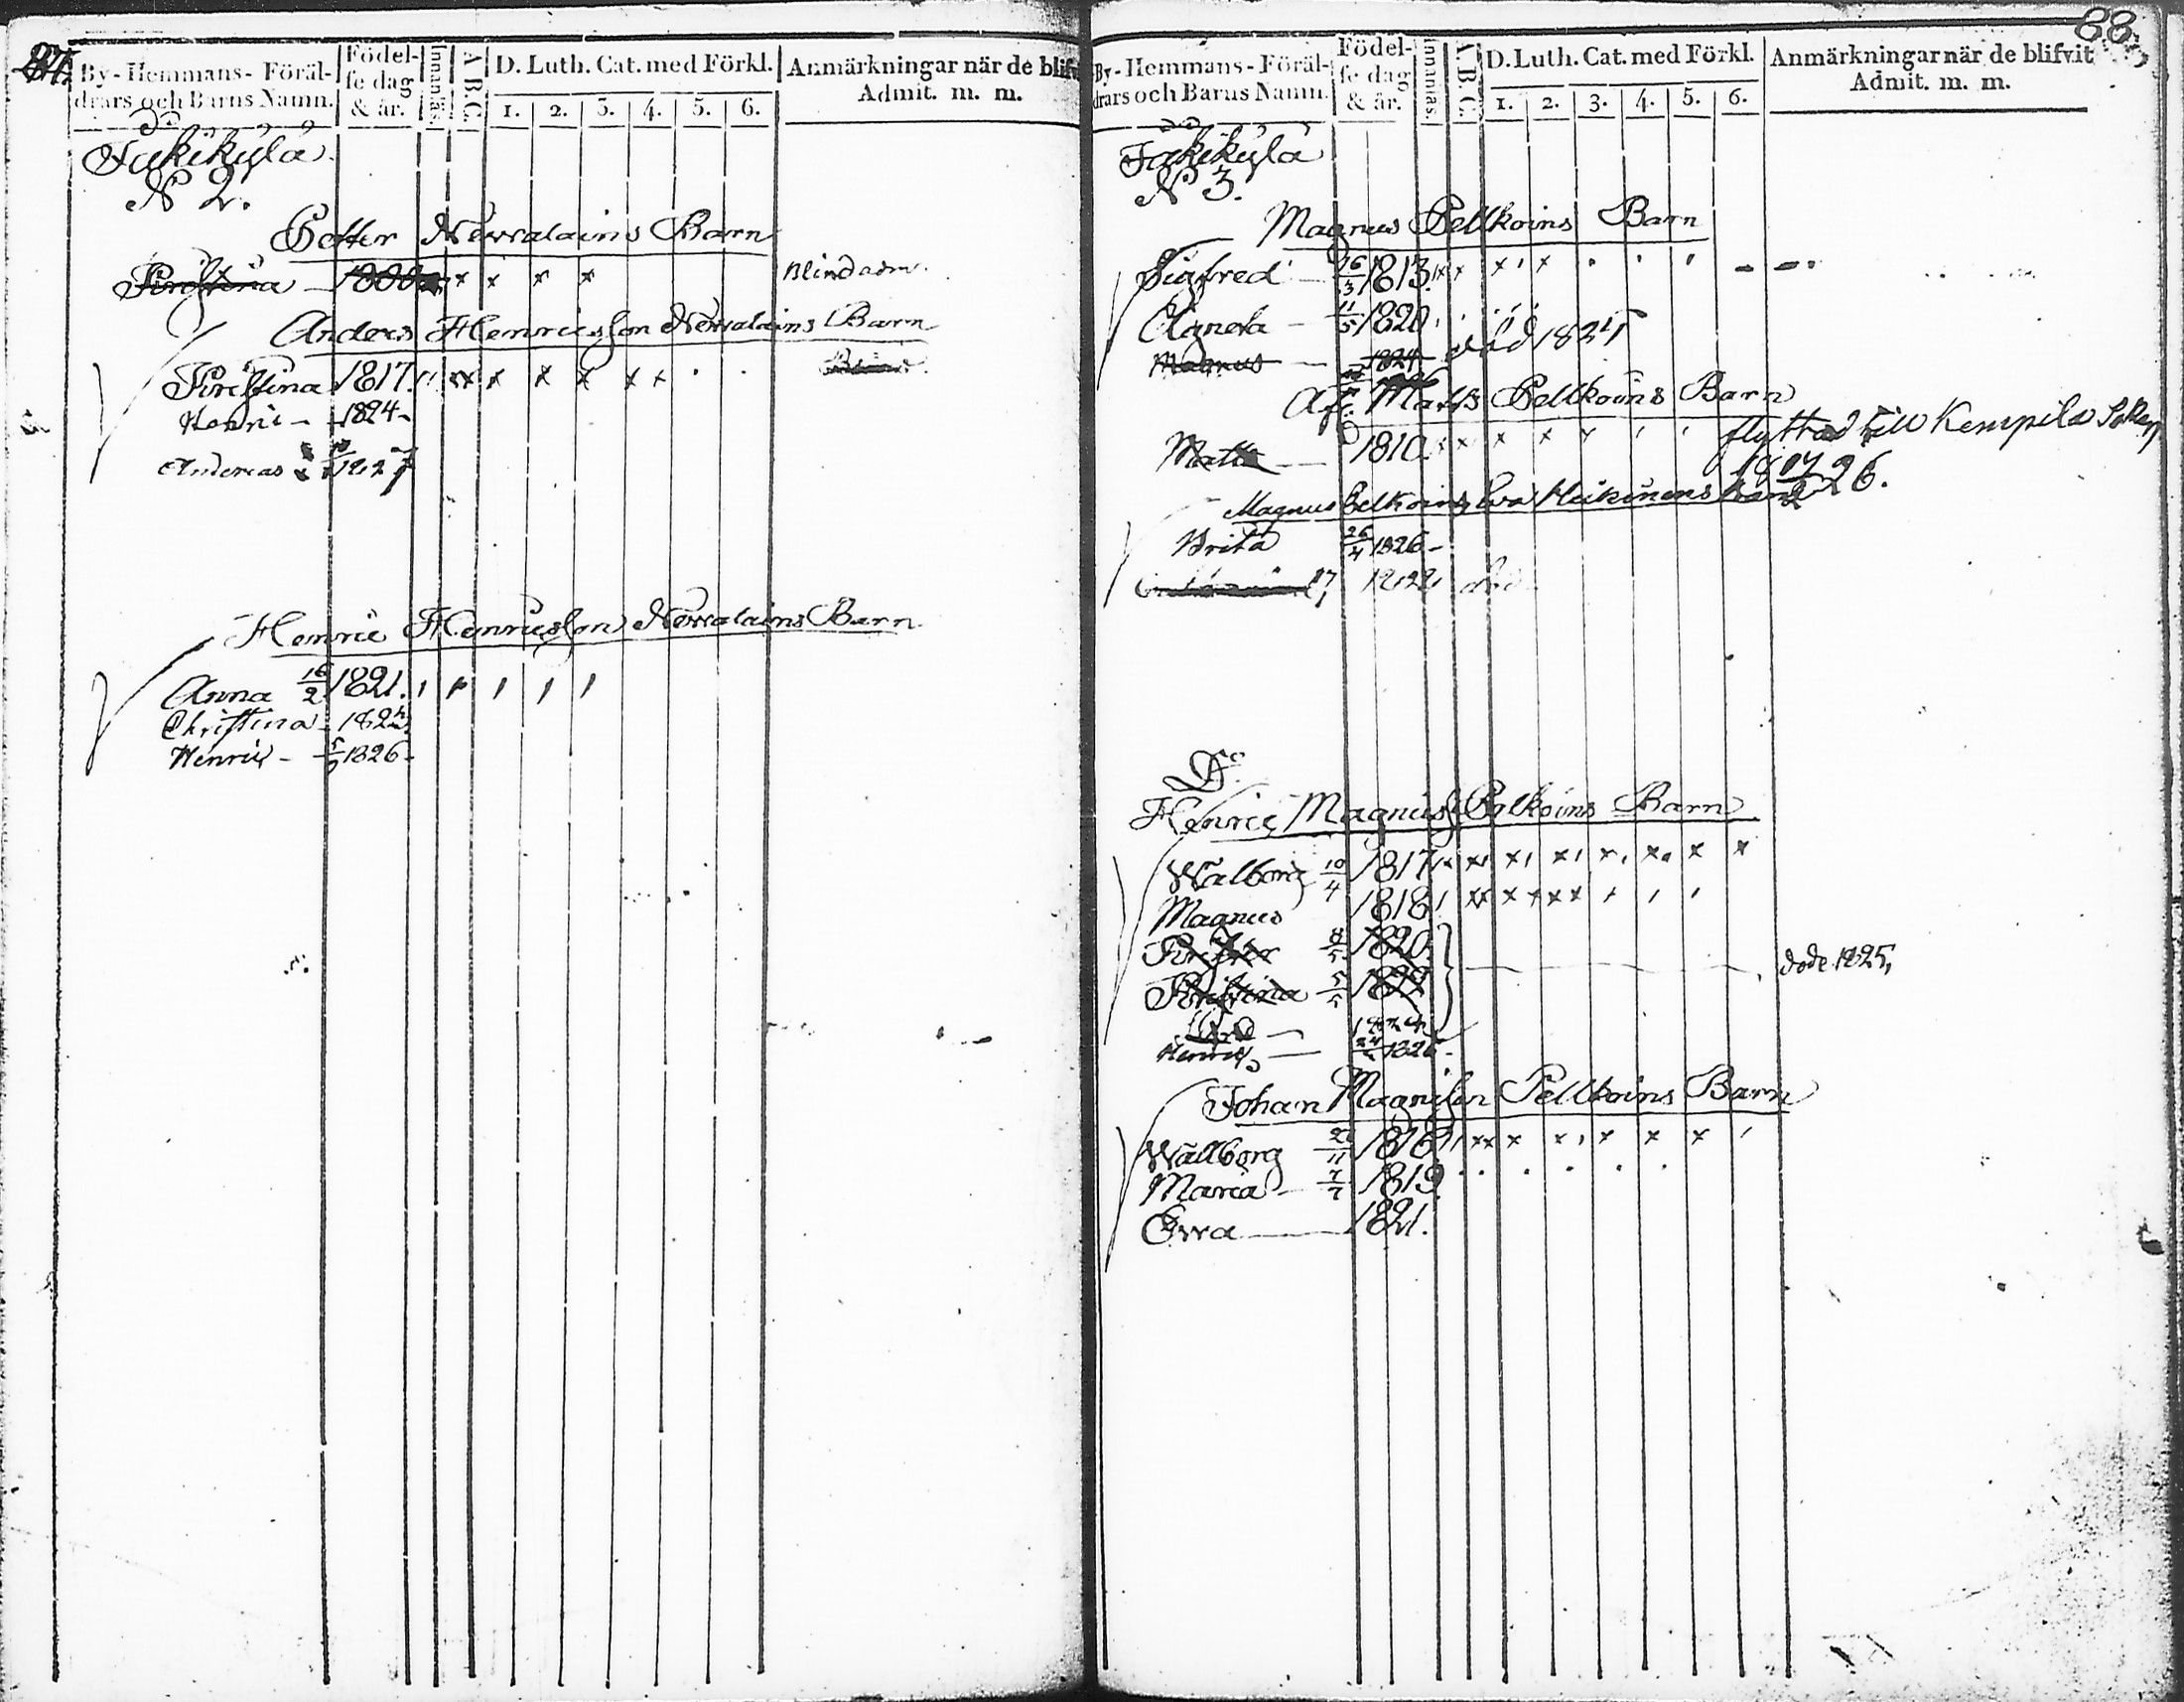 By-Hemmans-Föräl-
drars och Barns Namn.
Födel-
se dag
& år.
Innanläs
A.B.C.
D. Luth. Cat. med Förkl.
1. 2. 3. 4. 5. 6.
Anmärkningar när de blifv
Admit. m. m.
N 2.
Petter Newalains Barn
Kirstina Blind adm.
Anders Henricsson Newalains Barn
Kiristina 1817.
Henric - 1824 -
Andreas 1827
Henric Henricsson Newalains Barn
Anna 16/2 1821.
Christina 1824
Henric - 1826 -
88.
By-Hemmans-Föräl-
drars och Barns Namn.
Födel-
se dag
& är.
Innanläs
A.B.C.
D. Luth. Cat. med Förkl.
1. 2. 3. 4. 5. 6.
Anmärkningar när de blifvit
Admit. m. m.
N 3.
Magnus Pellkoins Barn
Sigfred 26/3 1813.
Agneta - 11/5 1820.
Magnus 1824 död
Afl. Matts Pellkoins Barn
Matts 1810. flyttad till Kempilä Soken
26.
Magnus Pelkoins Eva Heikinens barn
Brita 26/4 1826 -
död
Do
Henric Magnuss. Pelkoins Barn
Walborg 10/4 1817
Magnus 1818
8/5 1820.
Kristina 5/5 1822 döde 1825,
1824
Henric 1826 -
Johan Magnisson Pellkoins Barn
Wallborg 1816
Maria - 7/7 1819
Ewa 1821.